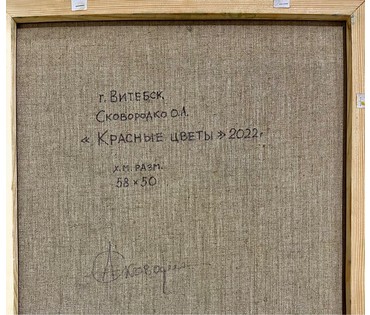 г. Витебск,
Сковородко О.Л.
« Красные цветы » 2022г.
х.м. разм.
58 × 50